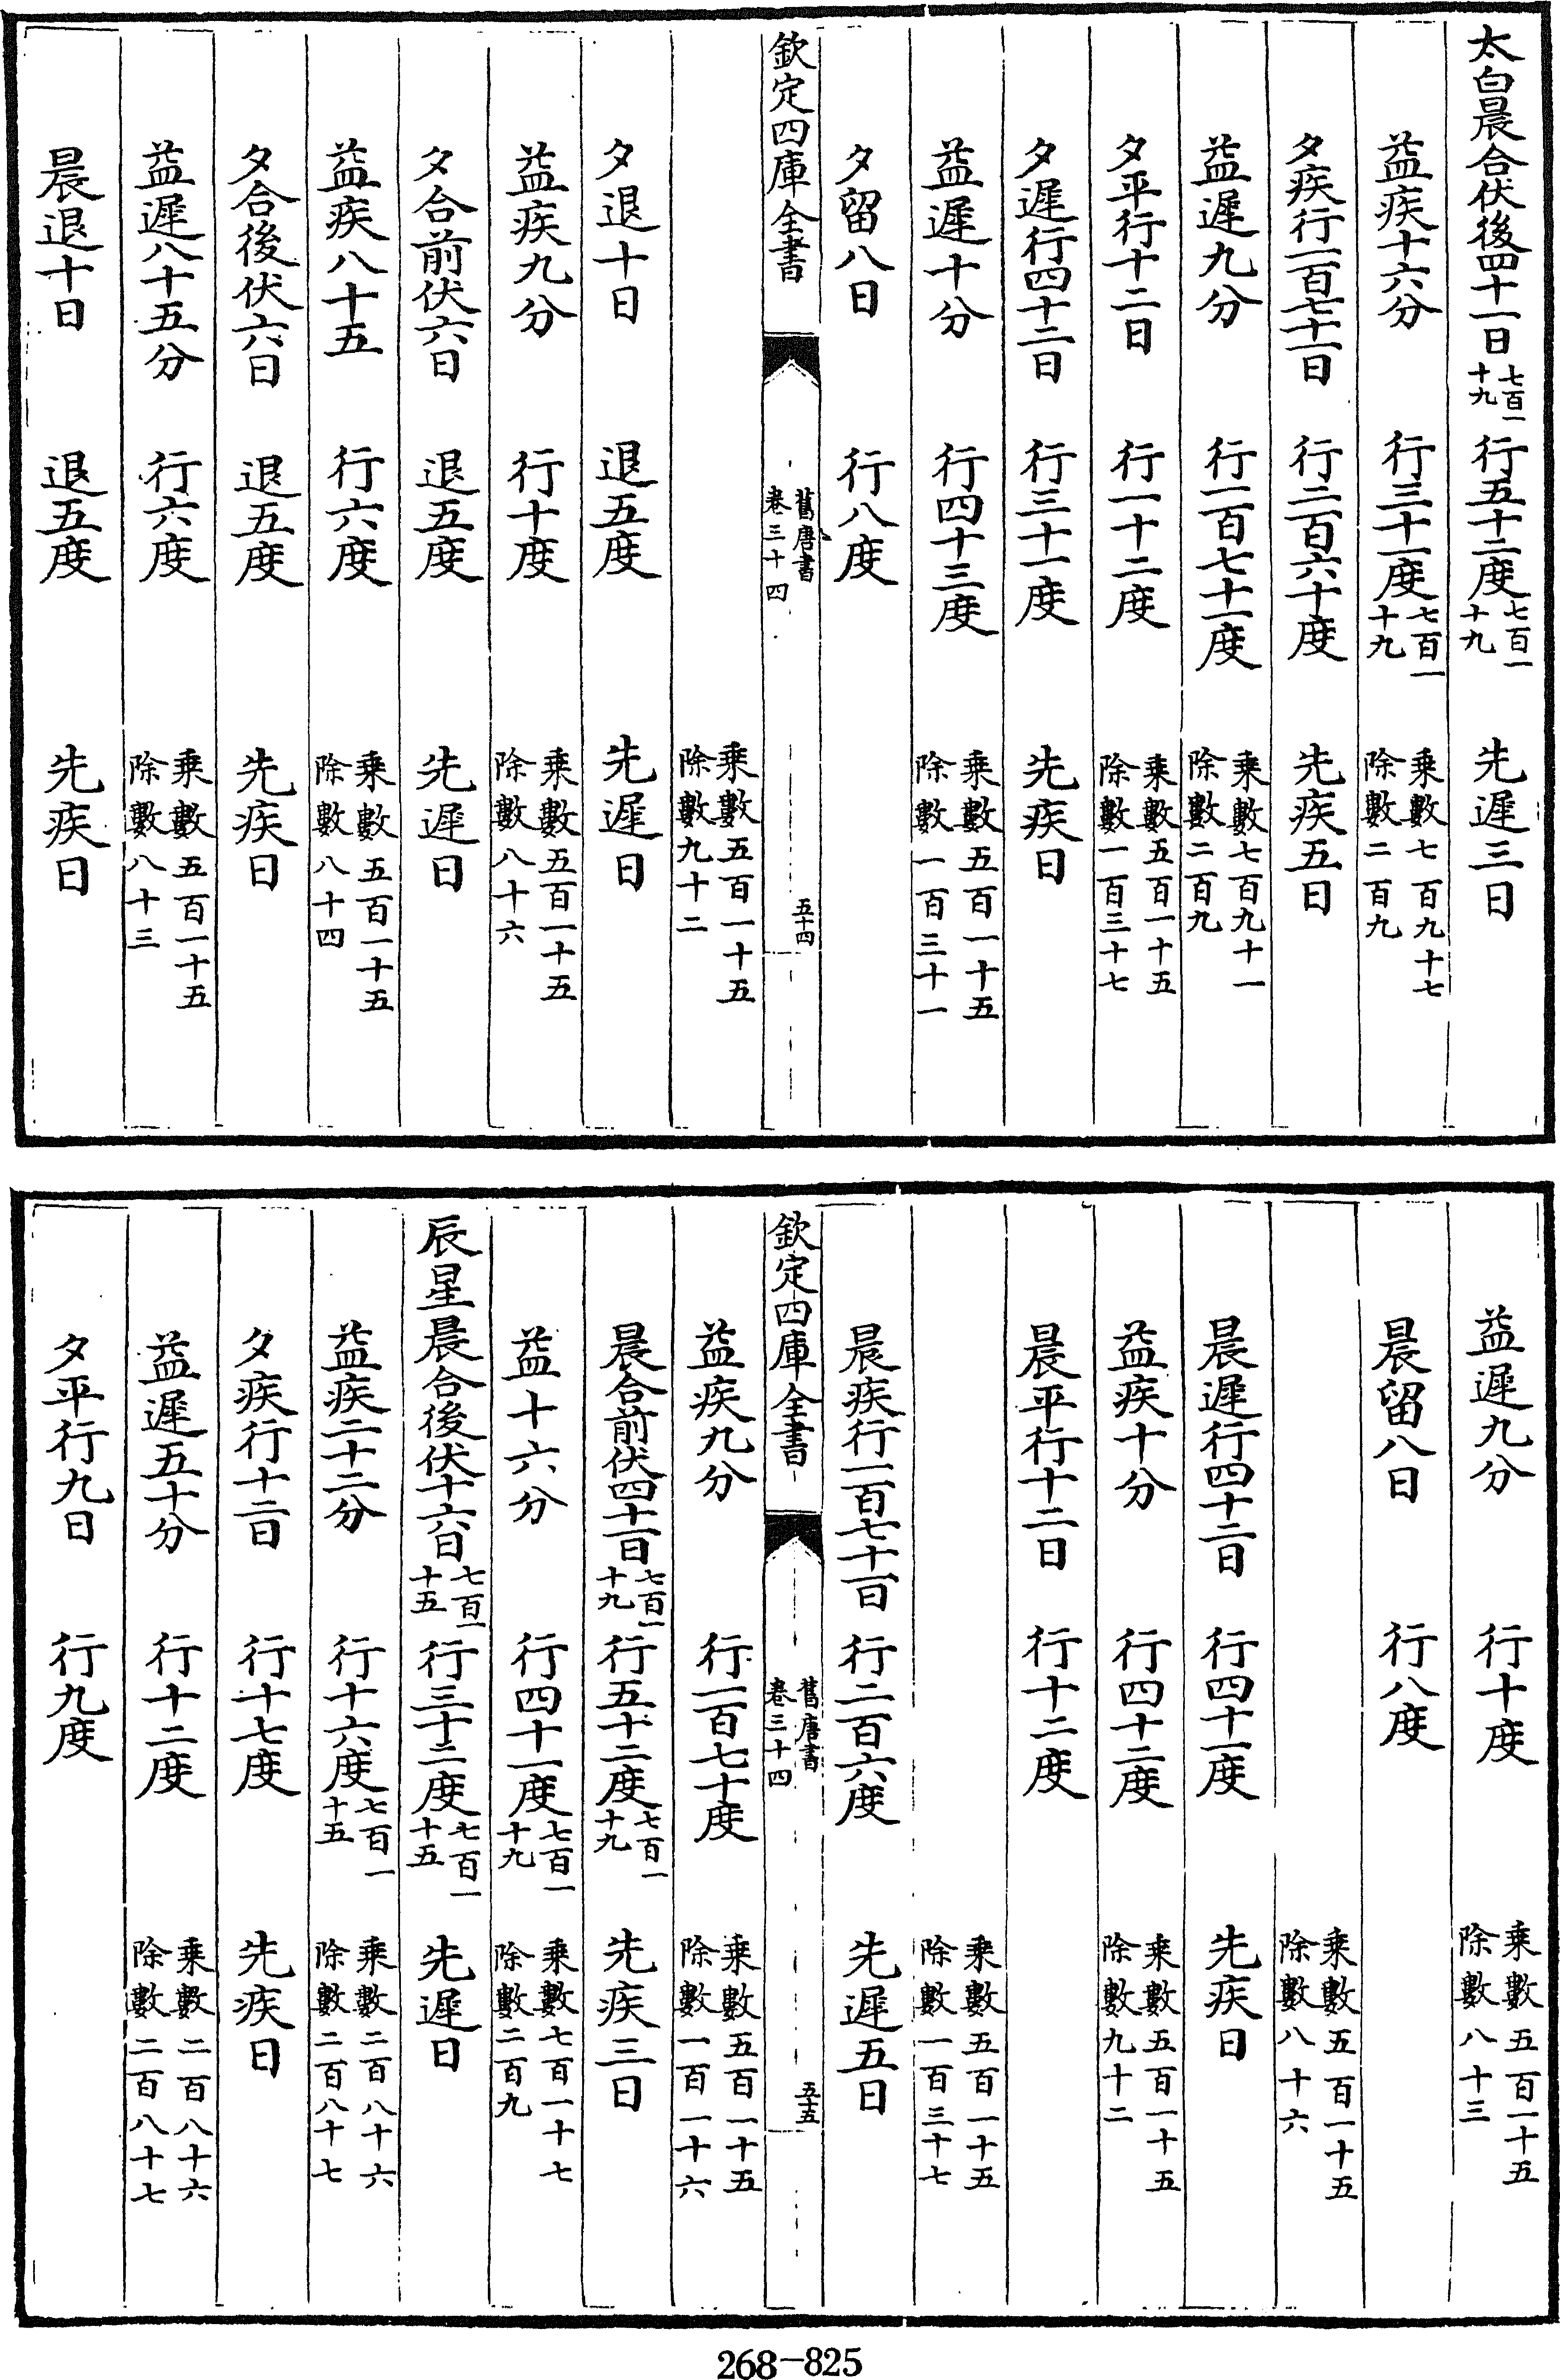 太白晨合伏後四十一日七百一十九 行五十二度七百一十九 先遲三日
益疾十六分 行三十一度七百一十九 乗數七百九十七除數二百九
夕疾行一百七十一日 行二百六十度 先疾五日
益遲九分 行一百七十一度 乗數七百九十一除數二百九
夕平行十二日 行一十二度 乗數五百一十五除數一百三十七
夕遲行四十二日 行三十一度 先疾日
益遲十分 行四十三度 乗數五百一十五除數一百三十一
夕留八日 行八度
欽定四庫全書 舊唐書卷三十四 五十四
乗數五百一十五除數九十二
夕退十日 退五度 先遲日
益疾九分 行十度 乗數五百一十五除數八十六
夕合前伏六日 退五度 先遲日
益疾八十五 行六度 乗數五百一十五除數八十四
夕合後伏六日 退五度 先疾日
益遲八十五分 行六度 乗數五百一十五除數八十三
晨退十日 退五度 先疾日
益遲九分 行十度 乗數五百一十五除數八十三
晨留八日 行八度
乗數五百一十五除數八十六
晨遲行四十二日 行四十一度 先疾日
益疾十分 行四十二度 乗數五百一十五除數九十二
晨平行十二日 行十二度
乗數五百一十五除數一百三十七
晨疾行一百七十一日 行二百六度 先遲五日
欽定四庫全書 舊唐書卷三十四 五十五
益疾九分 行一百七十度 乗數五百一十五除數一百一十六
晨合前伏四十一日七百一十九 行五十二度七百一十九 先疾三日
益十六分 行四十一度七百一十九 乗數七百一十七除數二百九
辰星晨合後伏十六日七百一十五 行三十二度七百一十五 先遲日
益疾二十二分 行十六度七百一十五 乗數二百八十六除數二百八十七
夕疾行十二日 行十七度 先疾日
益遲五十分 行十二度 乗數二百八十六除數二百八十七
夕平行九日 行九度
268-825